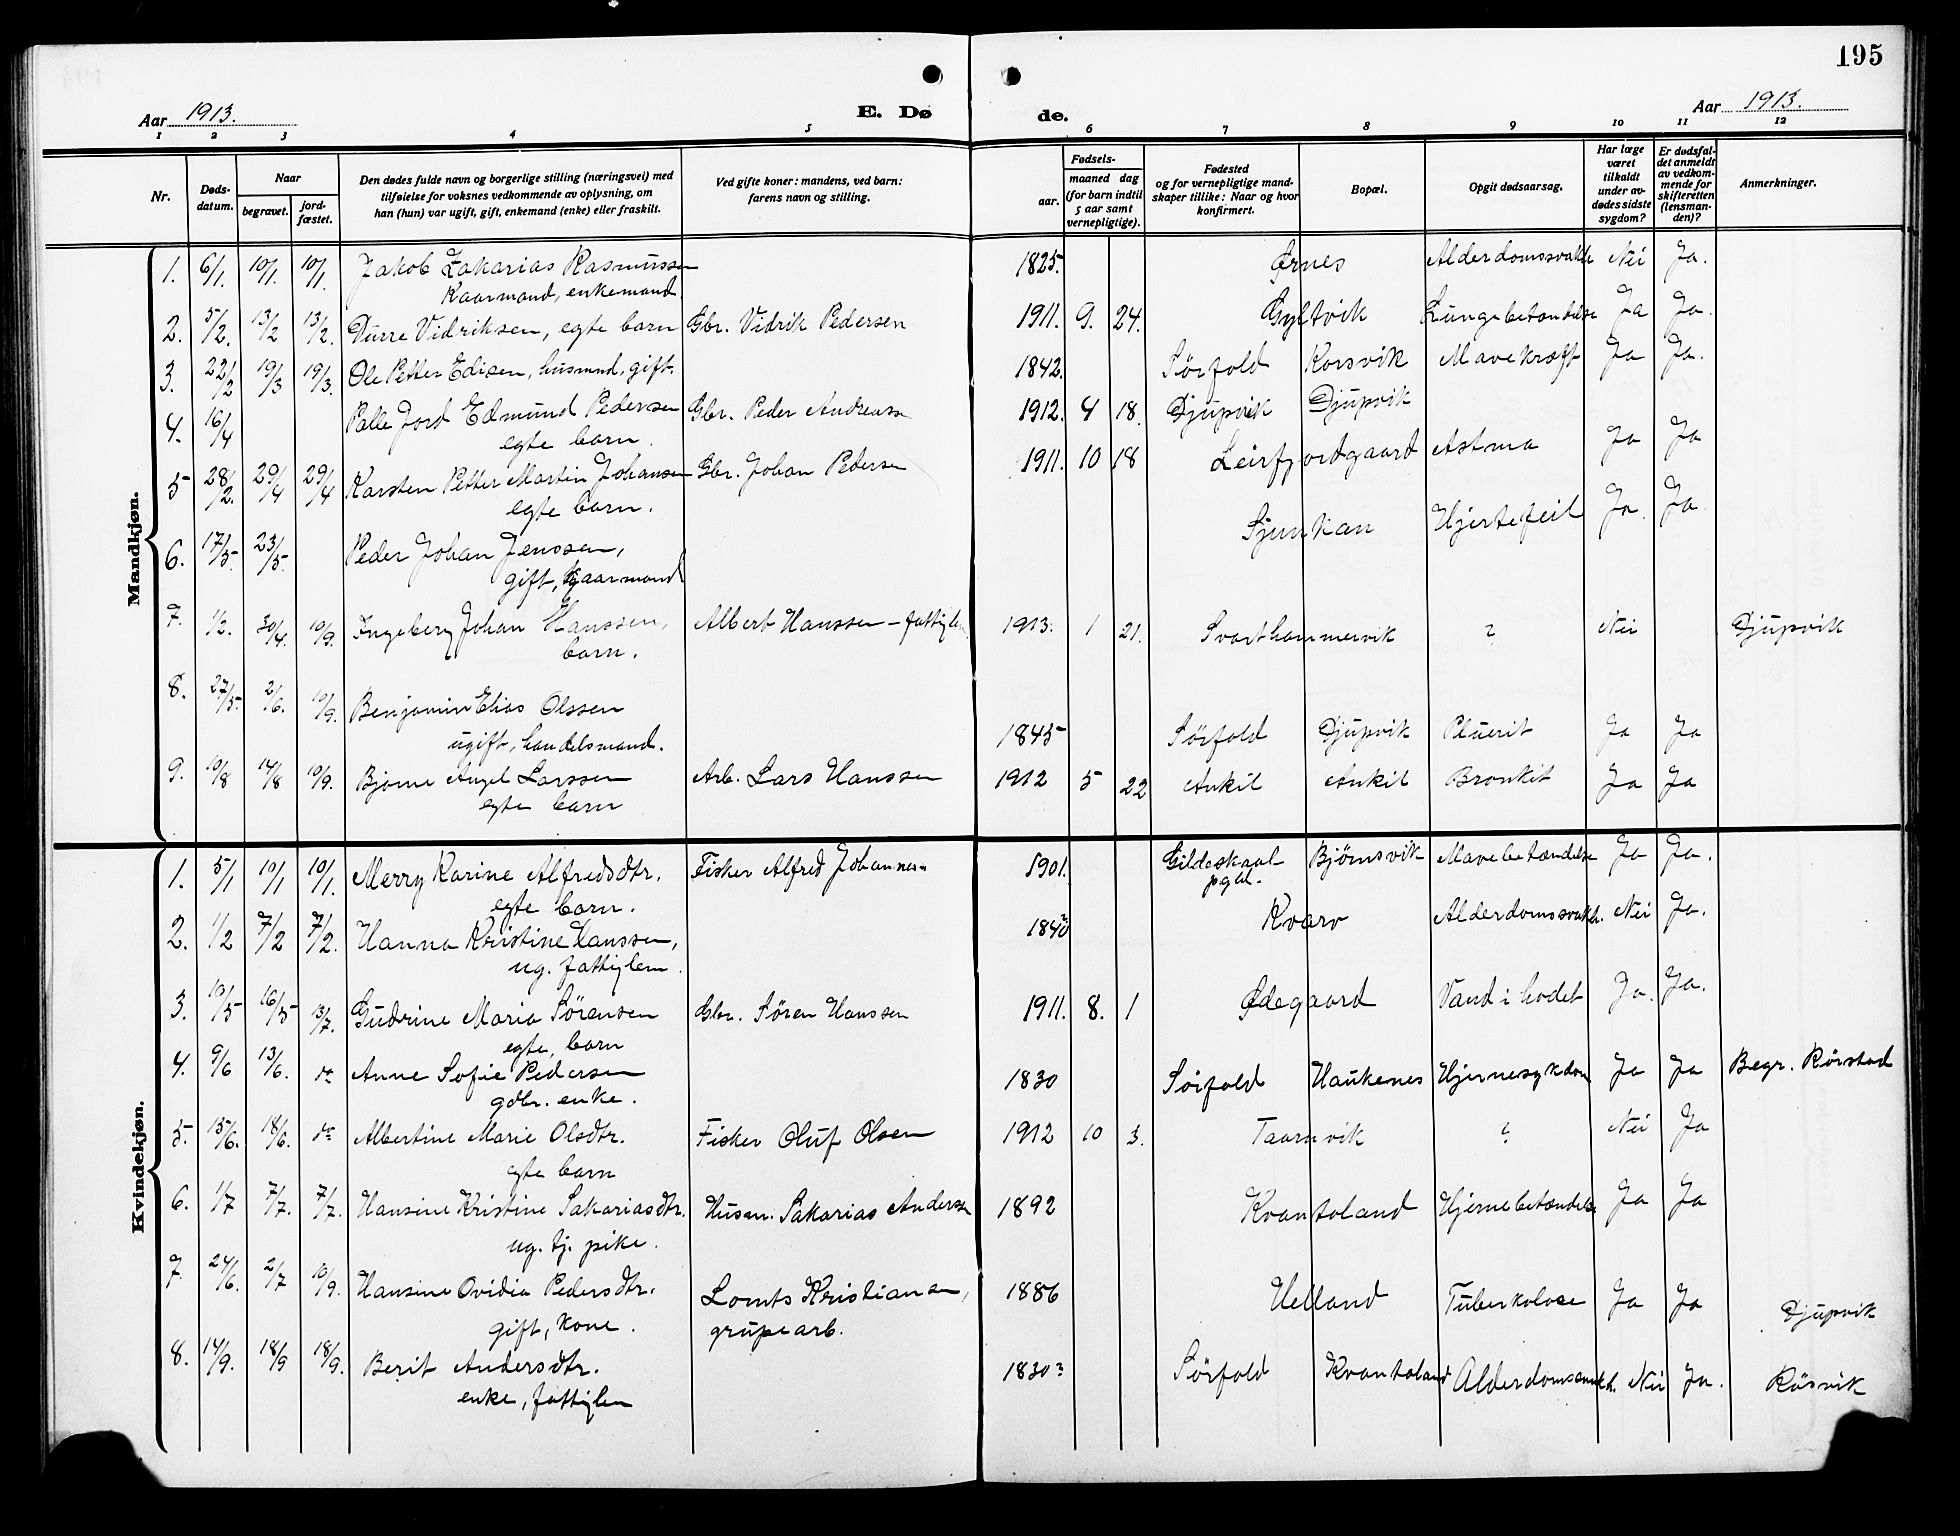 195
Aar 1913. E. Dø de. Aar 1913.
1 2 3 4 5 6 7 8 9 10 11 12
Nr.
Døds-
datum.
Naar
begravet.
jord-
fæstet.
Den dødes fulde navn og borgerlige stilling (næringsvei) med
tilføielse for voksnes vedkommende av oplysning, om
han (hun) var ugift, gift, enkemand (enke) eller fraskilt.
Ved gifte koner: mandens, ved barn:
farens navn og stilling.
Fødsels-
aar. maaned dag
(for barn indtil
5 aar samt
vernepligtige).
Fødested
og for vernepligtige mand-
skaper tillike: Naar og hvor
konfirmert.
Bopæl.
Opgit dødsaarsag.
Har læge
været
tilkaldt
under av-
dødes sidste
sygdom?
Er dødsfal-
det anmeldt
av vedkom-
mende for
skifteretten
(lensman-
den)?
Anmerkninger.
Mandkjøn.
1. 6/1. 10/1. 10/1. Jakob Zakarias Rasmussen 1825. Ørnes Alderdomssvakh Nei Ja.
Kaarmand, enkemand.
2. 5/2. 13/2 13/2. Durre Vidriksen, egte barn Gbr. Vidrik Pedersen 1911. 9. 24. Gyltvik Lungebetændelse Ja Ja.
3. 22/2 19/3 19/3. Ole Petter Edisen, husmand, gift. 1842. Sørfold Korsvik Mavekræft Ja Ja.
4. 16/4 Palle Jord Edmund Pedersen Gbr. Peder Andreassn 1912. 4 18. Djupvik Djupvik
egte barn.
5 28/2. 29/4 29/4 Karsten Petter Martin Johansen Gbr. Johan Pedersen 1911. 10 18 Leirfjordgaard Astma Ja Ja
egte barn.
6. 17/5. 23/5. Peder Johan Jenssen, Sjunkan Hjertefeil Ja. Ja.
gift, kaarmand
7. 1/2. 30/4. 10/9. Ingeberg Johan Hanssen, Albert Hanssen - fattiglem 1913. 1 21. Svarthammervik ? Nei Djupvik
barn.
8. 27/5. 2/6. 10/9. Benjamin Elias Olssen 1845 Sörfold Djupvik Pluerit Ja Ja
ugift, handelsmand.
9. 10/8 14/8 10/9. Bjørne Angel Larssen Arb. Lars Hanssen 1912 5 22 Ankil Ankil Bronkit Ja Ja
egte barn
Kvindekjøn.
1. 5/1 10/1 10/1. Merry Karine Alfredsdtr. Fisker Alfred Johannesn 1901. Gildeskaal Bjørnsvik Mavebetændelse Ja Ja.
egte barn. pgld.
2. 1/2 7/2 7/2. Hanna Kristine Hanssen, 1840? Kvarv Alderdomssvakh. Nei Ja.
ug. fattiglem.
3. 10/5 16/5 13/7. Gudrine Maria Sørensen Gbr. Søren Hanssen 1911. 8. 1 Ødegaard Vand i hodet Ja. Ja.
egte, barn
4. 9/6 13/6. do Anne Sofie Pedersen 1830 Sörfold Haukenes Hjernesykdom Ja Ja Begr. Rörstad
gdbr. enke.
5. 15/6. 18/6. do Albertine Marie Olsdtr. Fisker Oluf Olsen 1912 10 3. Taarnvik ? Nei Ja
egte barn
6. 1/7 7/7. 7/7. Hansine Kristine Sakariasdtr. Husm. Sakarias Andersen 1892 Kvantoland Hjernebetændelse Ja Ja
ug. tj. pike.
7. 24/6. 2/7 10/9. Hansine Ovidia Pedersdtr. Kristiansen, 1886 Helland Tuberkolose Ja Ja Djupvik
gift, kone. grupearb.
8. 14/9. 18/9 18/9. Berit Andersdtr. 1830? Sörfold Kvantoland Alderdomssvakh. Nei Ja. Rösvik
enke, fattiglem